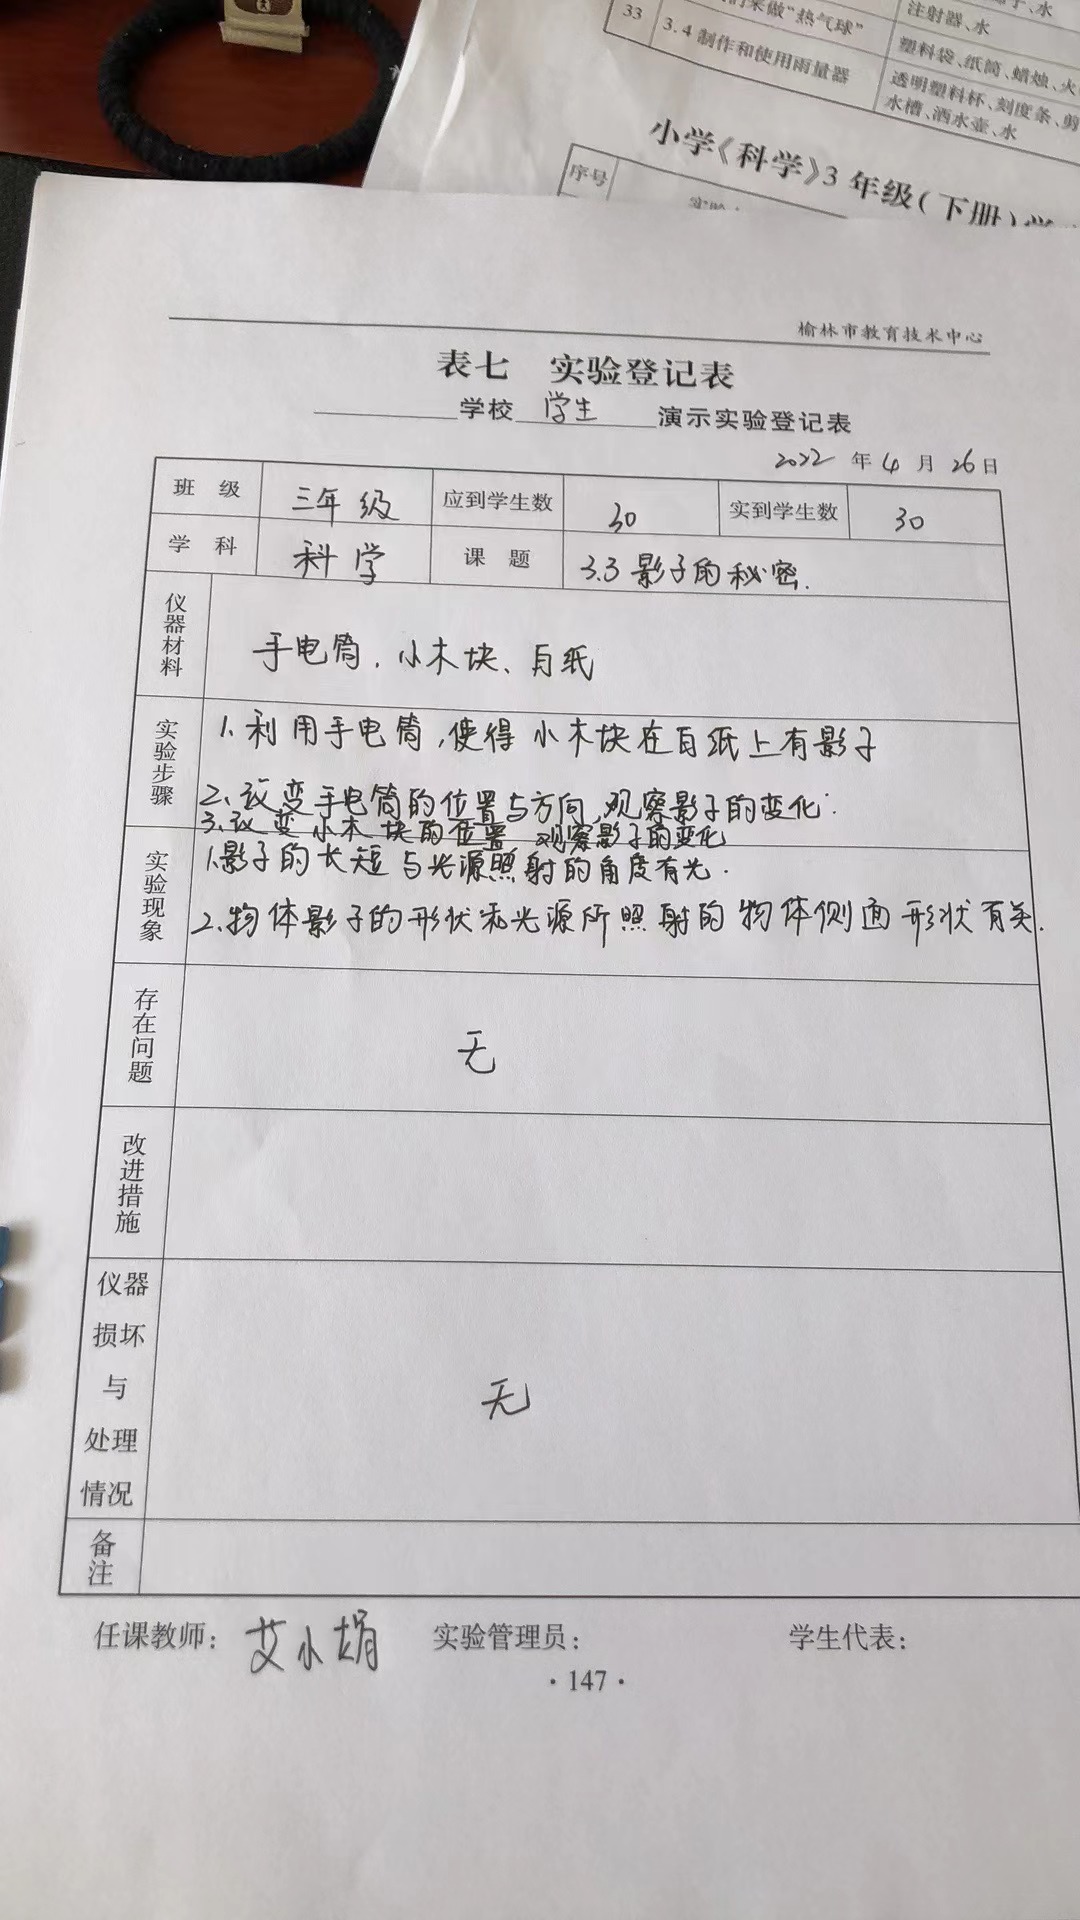 子、水
33
来做“热气球”
注射器、水
3.4 制作和使用雨量器
塑料袋、纸筒、蜡烛、火
透明塑料杯、刻度条、剪
水槽、洒水壶、水
小学《科学》3 年级(下册)学
序号
实验
榆林市教育技术中心
表七 实验登记表
学校 学生 演示实验登记表
2022 年 4 月 26 日
班 级 三年级 应到学生数 30 实到学生数 30
学 科 科学 课 题 3.3 影子的秘密.
仪器材料
手电筒、小木块、白纸
实验步骤
1. 利用手电筒,使得小木块在白纸上有影子
2. 改变手电筒的位置与方向,观察影子的变化.
3. 改变小木块的位置 观察影子的变化
实验现象
1. 影子的长短与光源照射的角度有关.
2. 物体影子的形状和光源所照射的物体侧面形状有关.
存在问题
无
改进措施
仪器
损坏
与
处理
情况
无
备注
任课教师: 艾小娟 实验管理员: 学生代表:
·147·